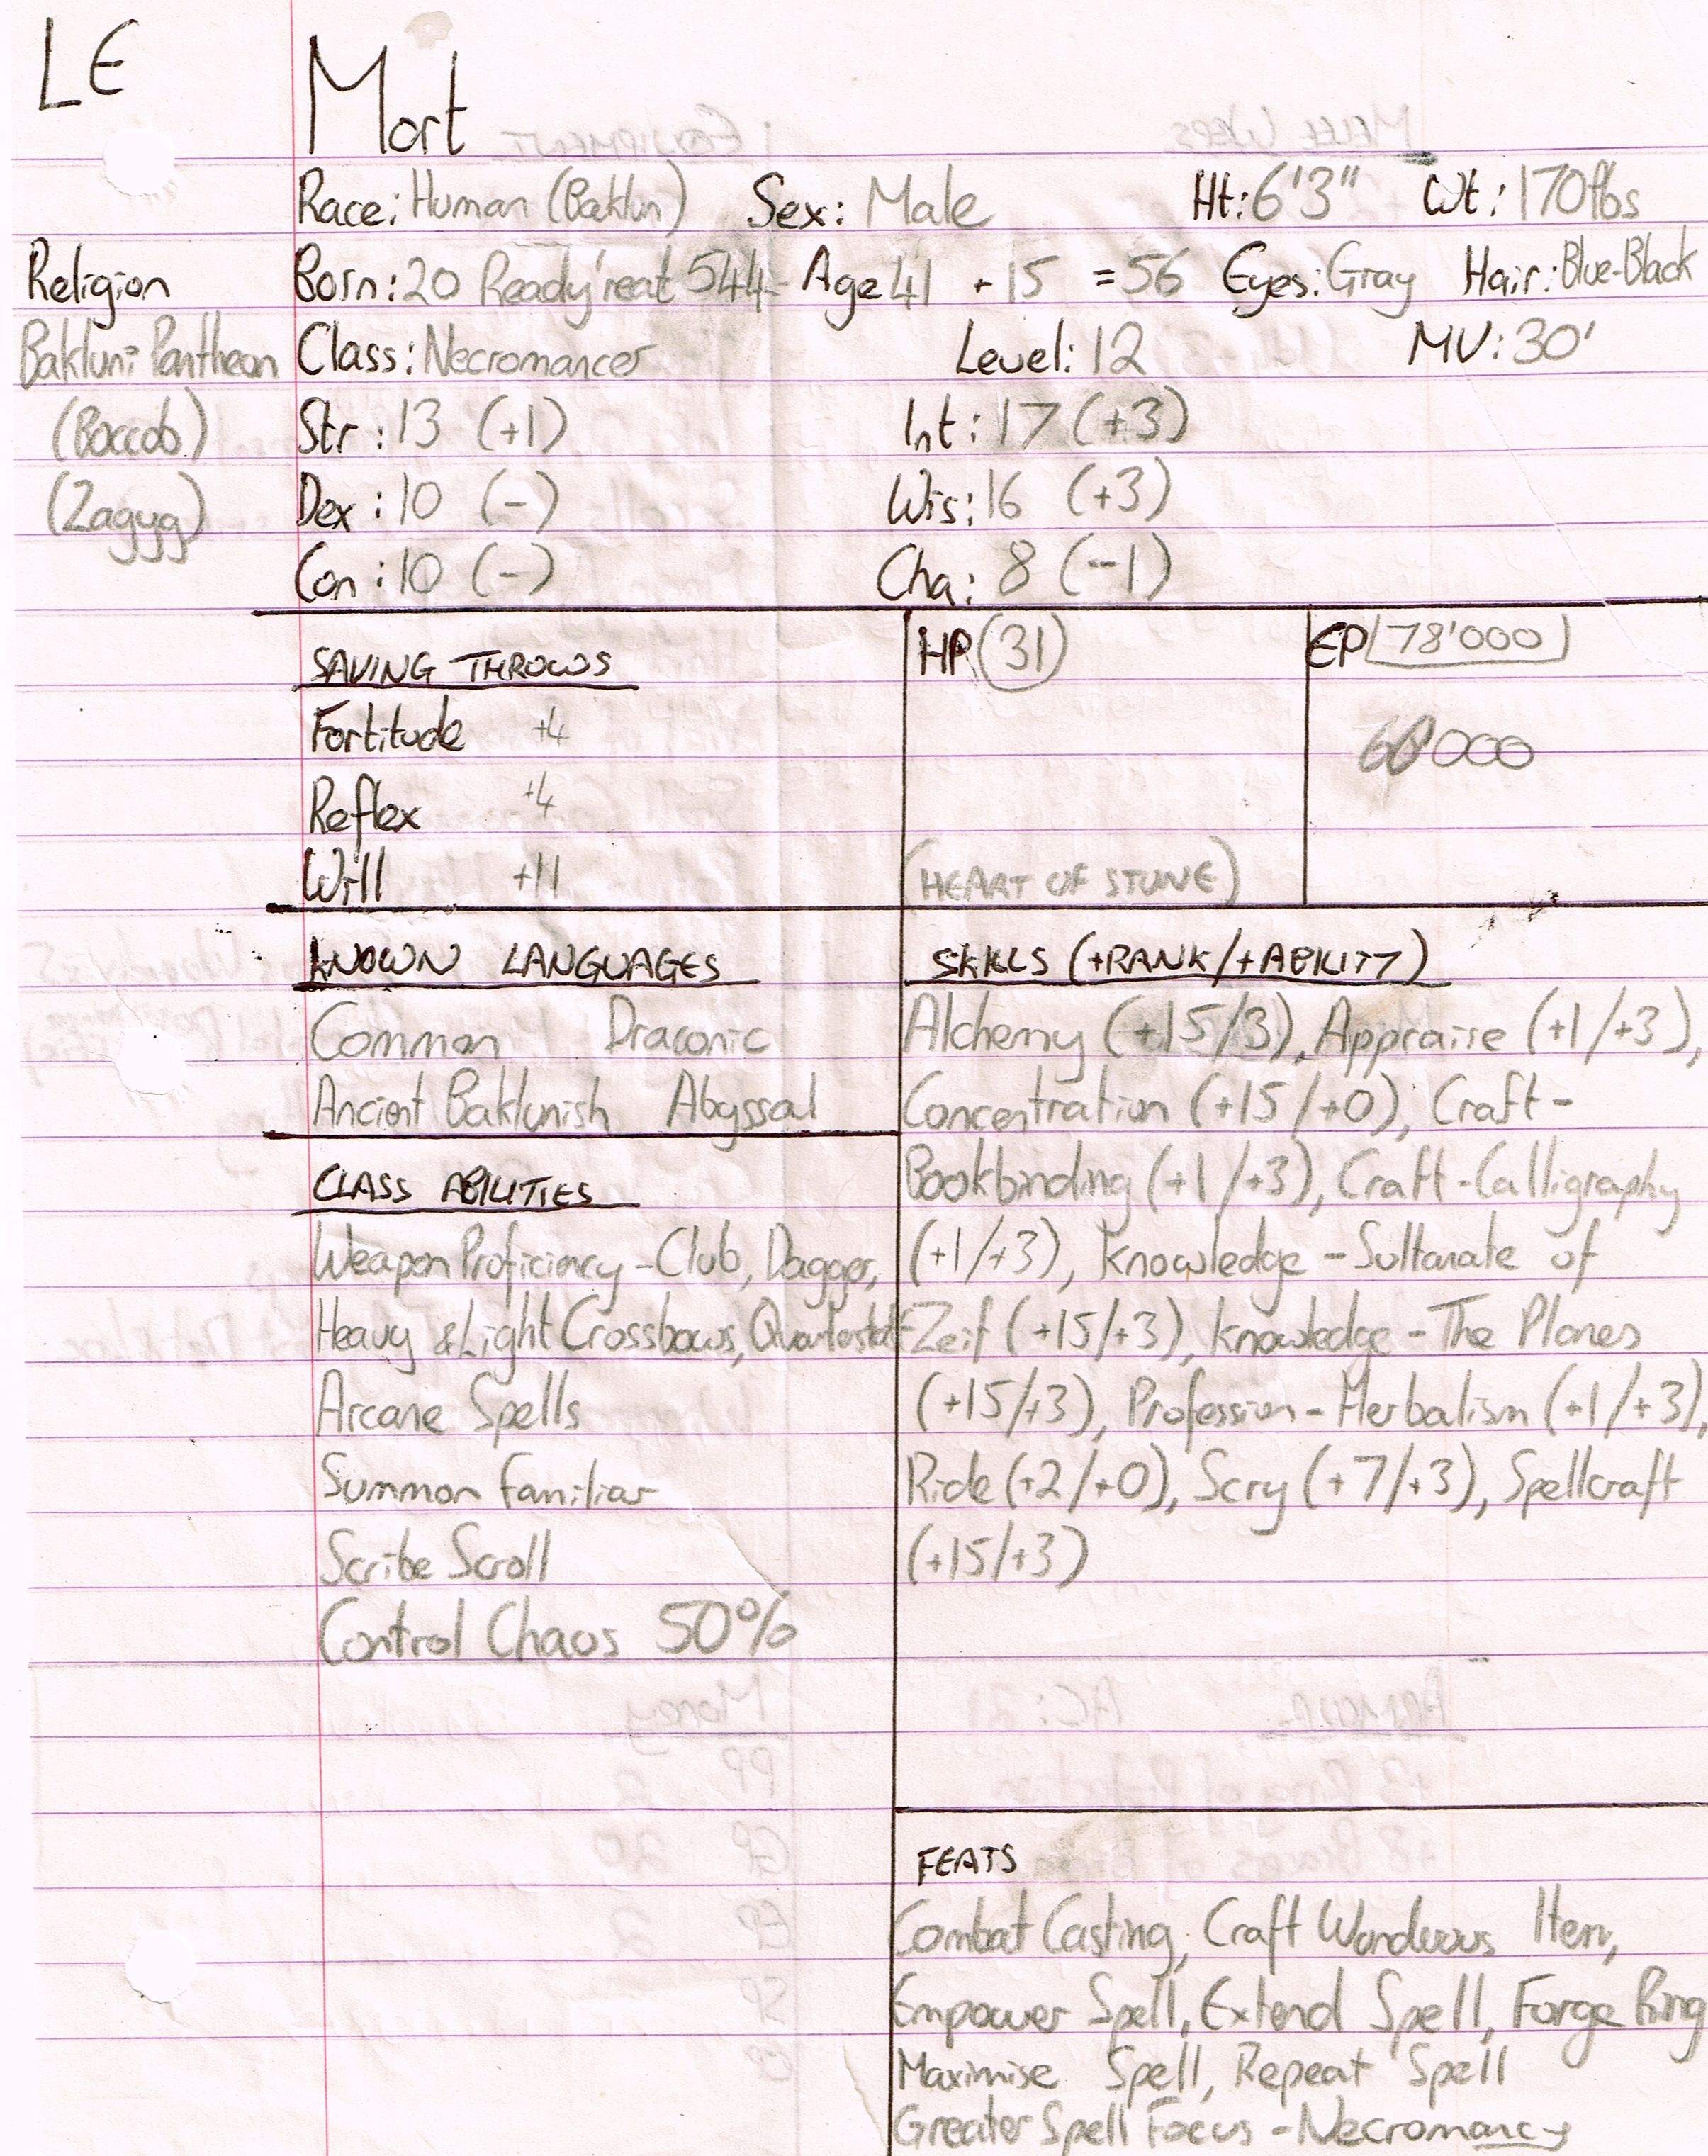 LE
Mort
Race: Human (Baklun) Sex: Male Ht: 6'3" Wt: 170lbs
Religion
Born: 20 Ready'reat 544 Age 41 + 15 = 56 Eyes: Gray Hair: Blue-Black
Bakluni Pantheon
(Boccob)
(Zagyg)
Class: Necromancer Level: 12 MV: 30'
Str: 13 (+1) Int: 17 (+3)
Dex: 10 (-) Wis: 16 (+3)
Con: 10 (-) Cha: 8 (-1)
SAVING THROWS
Fortitude +4
Reflex +4
Will +11
HP (31)
(HEART OF STONE)
EP 78'000
KNOWN LANGUAGES
Common Draconic
Ancient Baklunish Abyssal
CLASS ABILITIES
Weapon Proficiency - Club, Dagger,
Heavy & Light Crossbows, Quarterstaff
Arcane Spells
Summon Familiar
Scribe Scroll
Control Chaos 50%
SKILLS (+RANK/+ABILITY)
Alchemy (+15/3), Appraise (+1/+3),
Concentration (+15/+0), Craft -
Bookbinding (+1/+3), Craft - Calligraphy
(+1/+3), Knowledge - Sultanate of
Zeif (+15/+3), Knowledge - The Planes
(+15/+3), Profession - Herbalism (+1/+3),
Ride (+2/+0), Scry (+7/+3), Spellcraft
(+15/+3)
FEATS
Combat Casting, Craft Wonderous Item,
Empower Spell, Extend Spell, Forge Ring
Maximise Spell, Repeat Spell
Greater Spell Focus - Necromancy